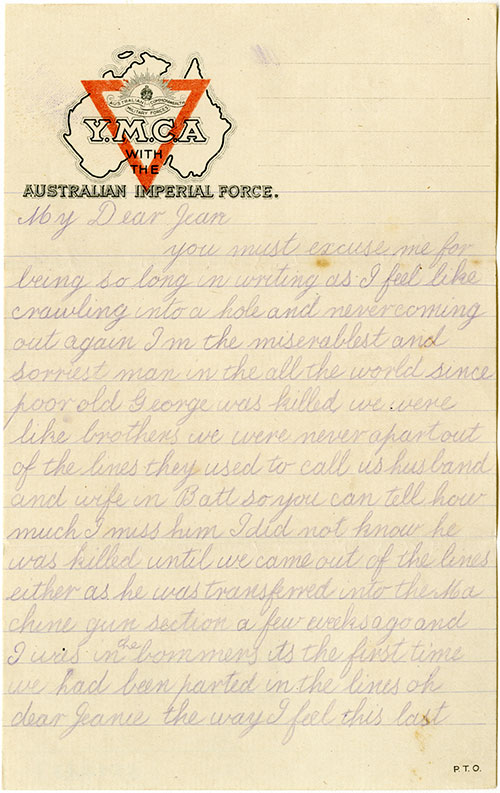 AUSTRALIAN COMMONWEALTH
MILITARY FORCES
Y.M.C.A
WITH
THE
AUSTRALIAN IMPERIAL FORCE.
My Dear Jean
you must excuse me for
being so long in writing as I feel like
crawling into a hole and never coming
out again I'm the miserablest and
sorriest man in the all the world since
poor old George was killed we were
like brothers we were never apart out
of the lines they used to call us husband
and wife in Batt so you can tell how
much I miss him I did not know he
was killed until we came out of the lines
either as he was transferred into the Ma
chine gun section a few weeks ago and
I was in the bommers its the first time
we had been parted in the lines oh
dear Jeanie the way I feel this last
P.T.O.